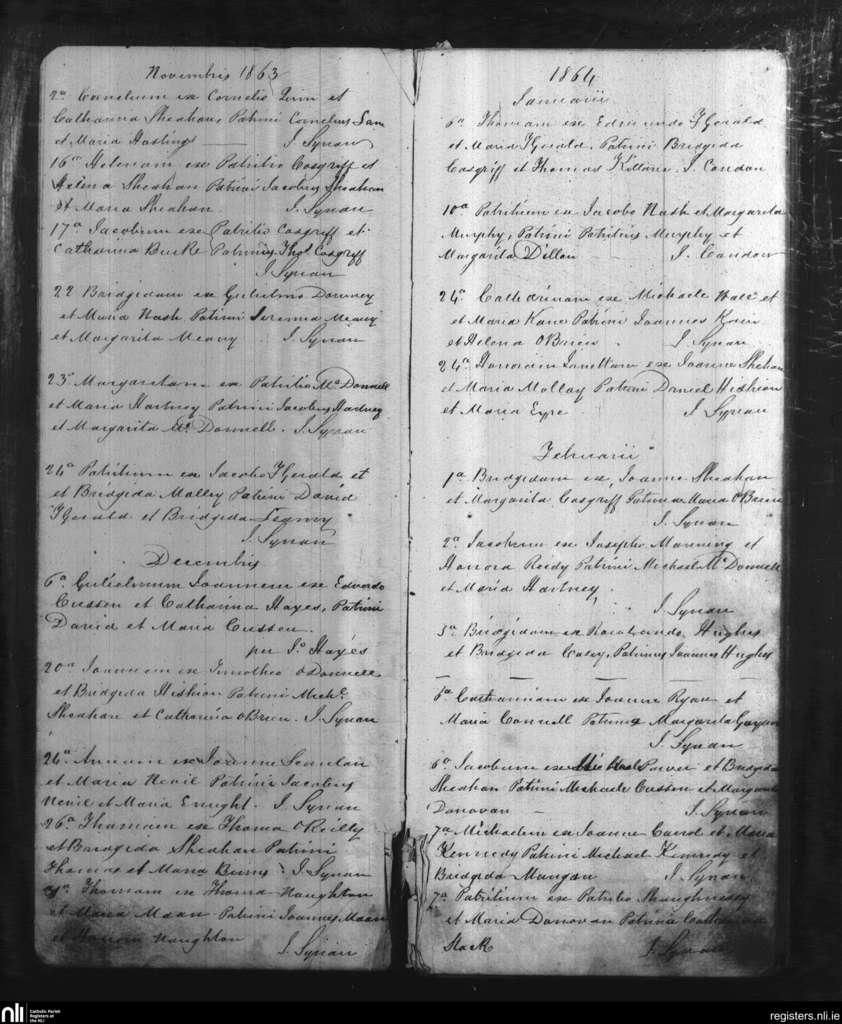 Novembris 1863
2a Cornelium ex Cornelio et
Catharina Sheahan, Patrini Cornelius
et Maria Hastings J. Synan
16a Helenam ex Patritio Cosgriff et
Helena Sheahan Patrini Jacobus Sheahan
et Maria Sheahan. J. Synan
17a Jacobum ex Patritio Cosgriff et
Catharina Burke Patrinus Thos Cosgriff
J. Synan
22 Bridgidam ex Gulielmo Downey
et Maria Nash Patrini Jeremia Meany
et Margarita Meany J. Synan
23a Margaritam ex Patritio McDonnell
et Maria Hartney Patrini Jacobus Hartney
et Margarita McDonnell. J. Synan
24a Patritium ex Jacobo FGerald et
et Bridgida Molley Patrini David
FGerald et Bridgida
J. Synan
Decembris
6a Gulielmum Joannem ex Edvardo
Cussen et Catharina Hayes, Patrini
David et Maria Cussen.
per Jo Hayes
20a Joannem ex Timotheo ODonnell
et Bridgida Hishion Patrini Michl
Sheahan et Catharina OBrien. J. Synan
26a Annam ex Joanne Scanlan
et Maria Nevil Patrini Jacobus
Nevil et Maria Enright. J. Synan
26a Thomam ex Thoma OReilly
et Bridgida Sheahan Patrini
Thomas et Maria Burns J. Synan
Thomam ex Thoma Naughton
et Maria Moan Patrini Joannes Moan
et Honora Naughton J. Synan
1864
Januarii
6a Thomam ex Edmundo FGerald
et Maria FGerald, Patrini Bridgida
Cosgriff et Thomas J. Condon
10a Patritium ex Jacobo Nash et Margarita
Murphy, Patrini Patritius Murphy et
Margarita Dillon J. Condon
24a Catharinam ex Michaele et
et Maria Kane Patrini Joannes
et Helena OBrien. J. Synan
24a Honoram ex Joanne Sheahan
et Maria Molloy Patrini Daniel Hishion
et Maria Eyre. J. Synan
Februarii
1a Bridgidam ex Joanne Sheahan
et Margarita Cosgriff Patrina Maria OBrien
J. Synan
2a Jacobum ex Josepho Manning et
Honora Reidy Patrini Michael McDonnell
et Maria Hartney.
J. Synan
5a Bridgidam ex Hughes
et Bridgida Casey, Patrinus Joannes Hughes
Catharinam ex Joanne Ryan et
Maria Connell Patrina Margarita
J. Synan
6a Jacobum ex Power et Bridgida
Sheahan Patrini Michaele Cussen et Margarita
Donovan J. Synan
7a Michaelem ex Joanne Carrol et Maria
Kennedy Patrini Michael Kennedy et
Bridgida Mangan J. Synan
7a Patritium ex Patritio Shaughnessy
et Maria Donovan Patrina Catharina
Stack J. Synan
nli
Catholic Parish
Registers at
the NLI
registers.nli.ie